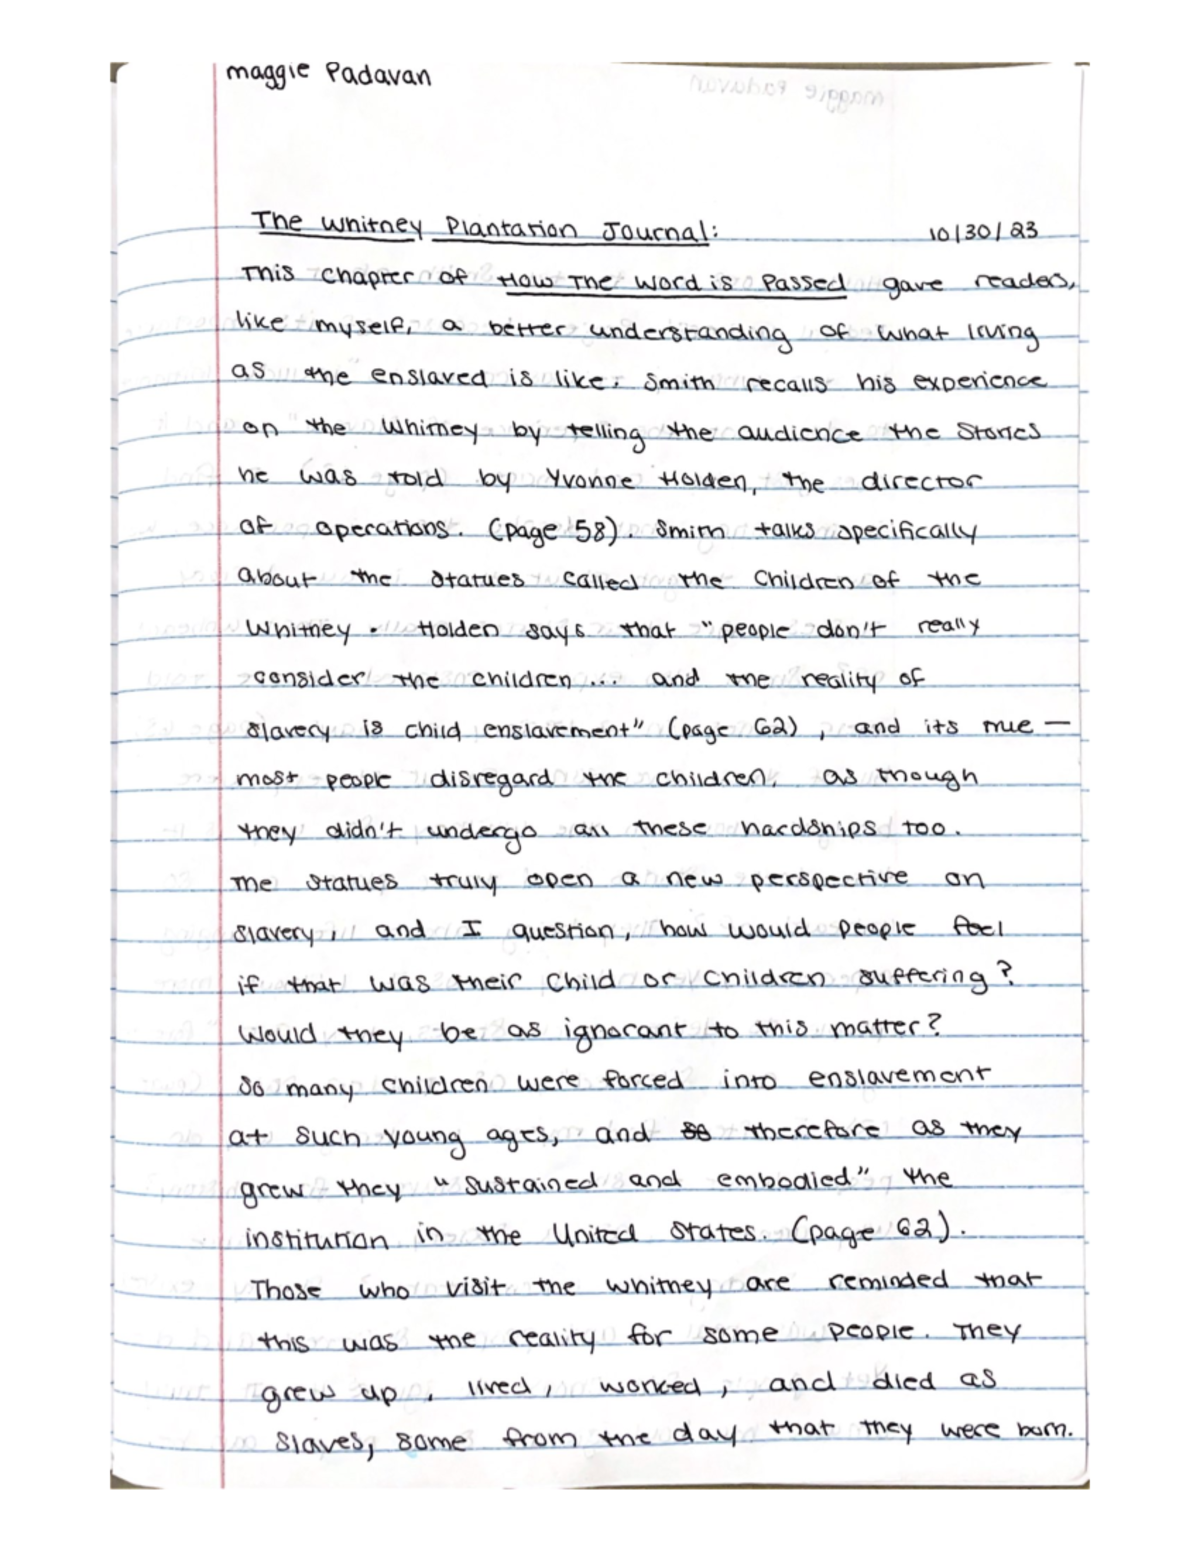 maggie Padavan
The Whitney Plantation Journal: 10/30/23
This chapter of How The Word is Passed gave readers,
like myself, a better understanding of what living
as the enslaved is like. Smith recalls his experience
on the Whitney by telling the audience the stories
he was told by Yvonne Holden, the director
of operations. (page 58). Smith talks specifically
about the statues called the Children of the
Whitney. Holden says that "people don't really
consider the children... and the reality of
slavery is child enslavement" (page 62), and its true —
most people disregard the children, as though
they didn't undergo all these hardships too.
The statues truly open a new perspective on
slavery, and I question, how would people feel
if that was their child or children suffering?
Would they be as ignorant to this matter?
So many children were forced into enslavement
at such young ages, and so therefore as they
grew they "sustained and embodied" the
institution in the United States. (page 62).
Those who visit the whitney are reminded that
this was the reality for some people. They
grew up, lived, worked, and died as
slaves, some from the day that they were born.